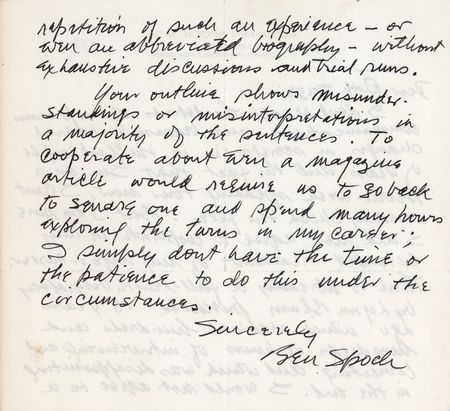 repetition of such an experience – or
even an abbreviated biography – without
exhaustive discussions and trial runs.
Your outline shows misunder-
standings or misinterpretations in
a majority of the sentences. To
cooperate about even a magazine
article would require us to go back
to square one and spend many hours
exploring the turns in my career;
I simply don't have the time or
the patience to do this under the
circumstances.
Sincerely
Ben Spock